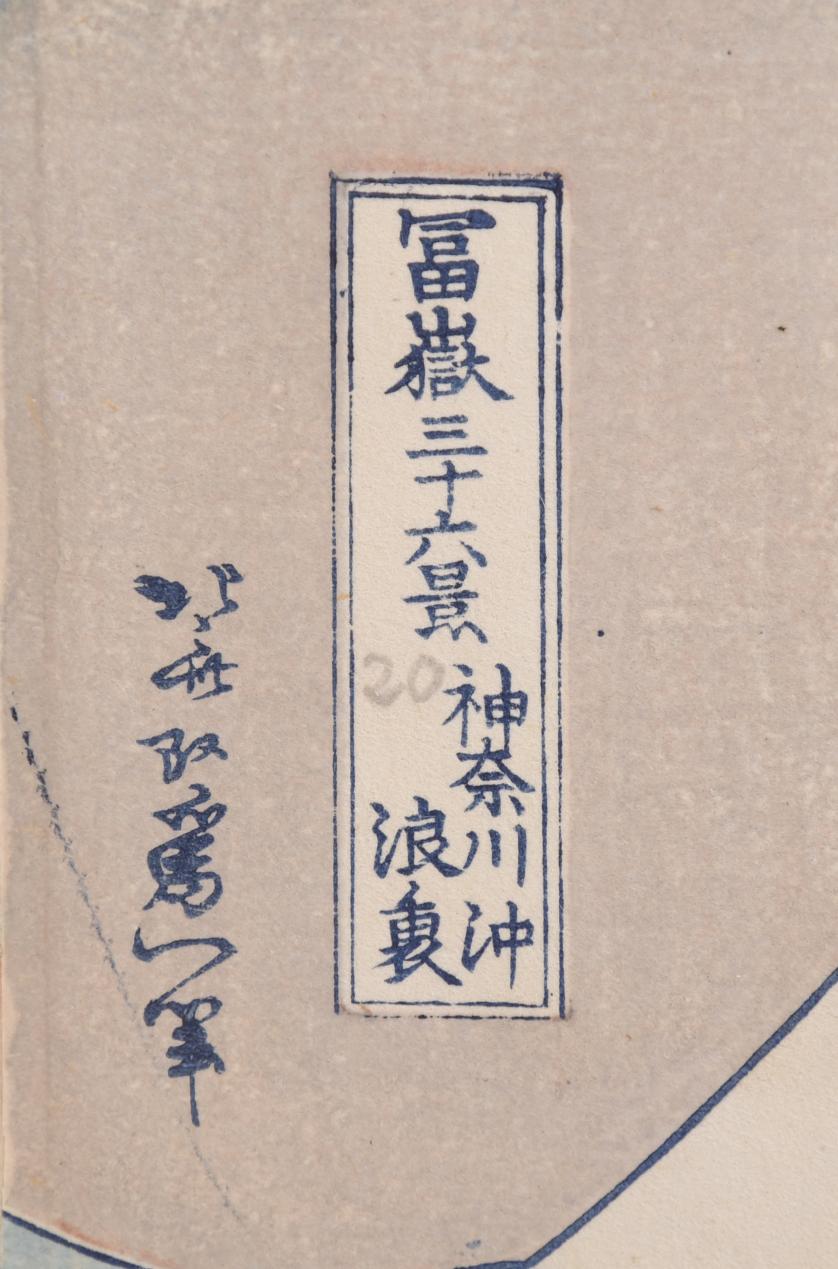 冨嶽三十六景
神奈川沖
浪裏
20
北斎改爲一筆